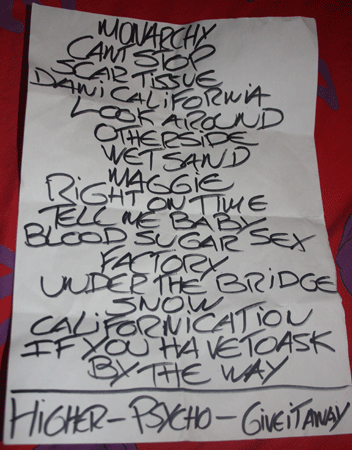 MONARCHY
CANT STOP
SCAR TISSUE
DANI CALIFORNIA
LOOK AROUND
OTHERSIDE
WET SAND
MAGGIE
RIGHT ON TIME
TELL ME BABY
BLOOD SUGAR SEX
FACTORY
UNDER THE BRIDGE
SNOW
CALIFORNICATION
IF YOU HAVE TO ASK
BY THE WAY
HIGHER - PSYCHO - GIVE IT AWAY